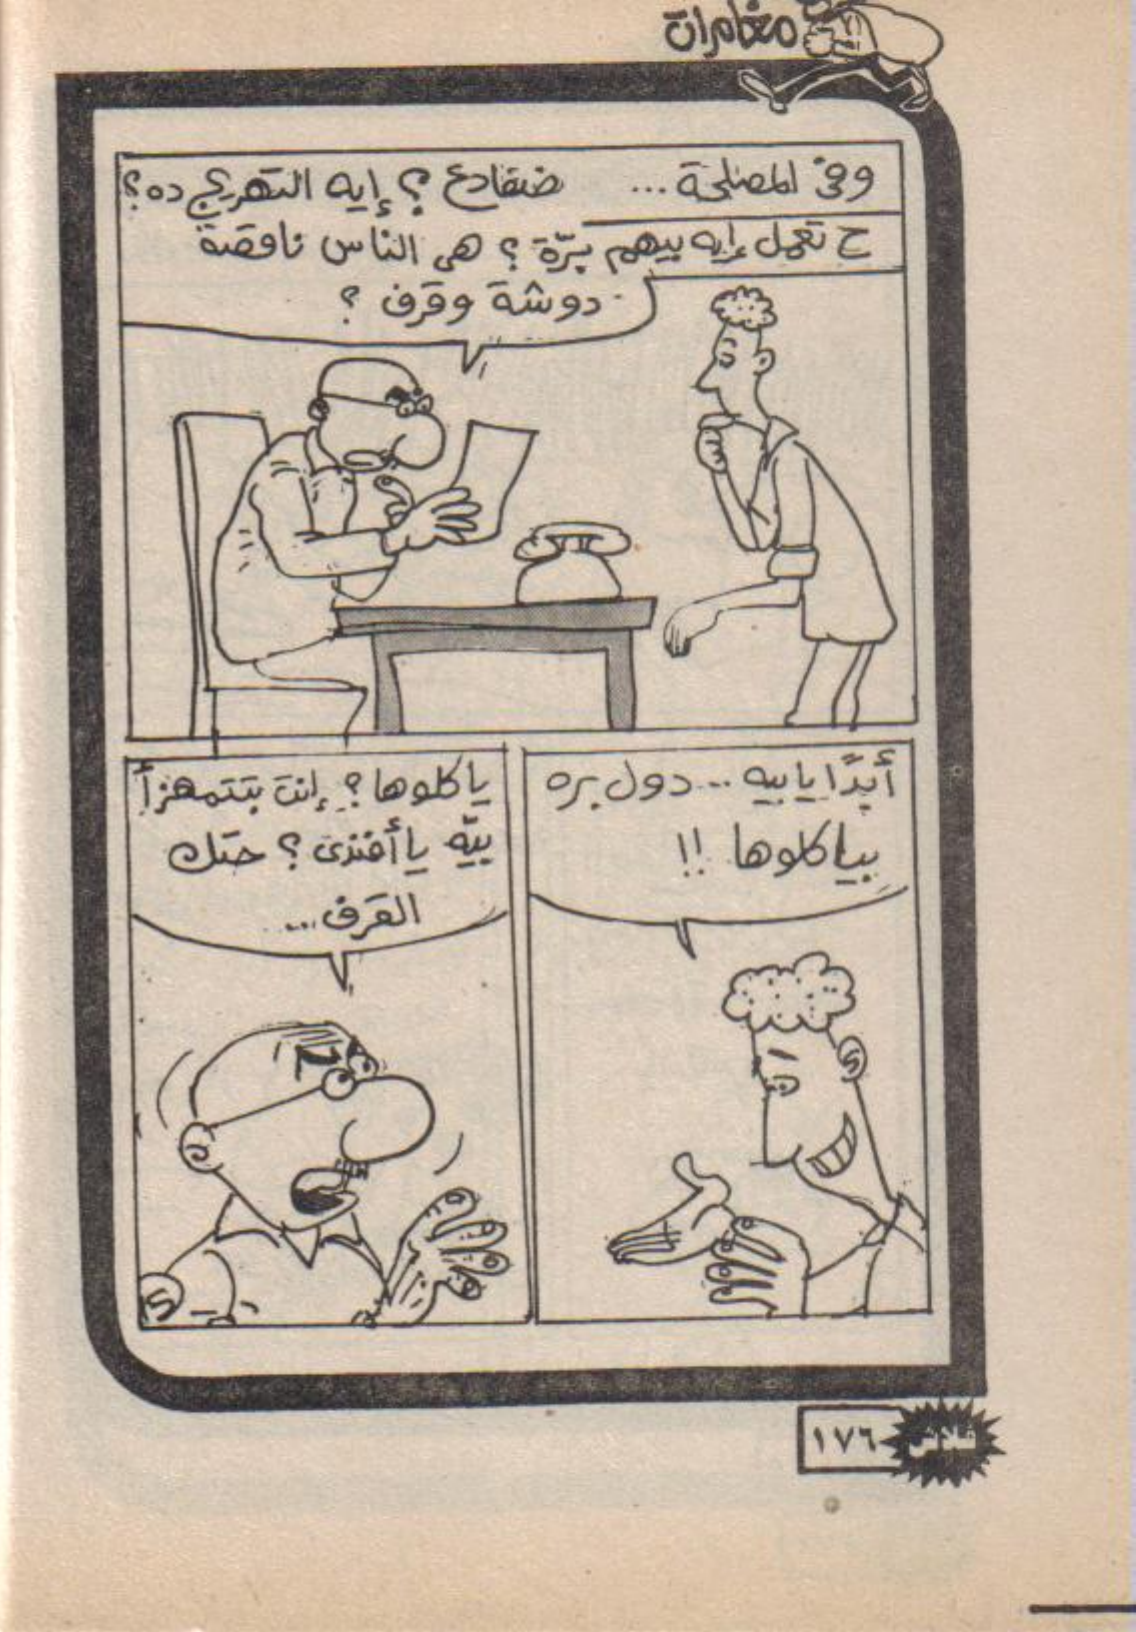 مغامرات
وفى المصلحة ... ضفادع ؟ إيه التهريج ده ؟
ح تعمل إيه بيهم برّة ؟ هى الناس ناقصة
دوشة وقرف ؟
أبدًا يا بيه ... دول بره
بياكلوها !!
ياكلوها ؟ إنت بتتمهزأ
بيّه يا أفندى ؟ جتك
القرف ...
١٧٦